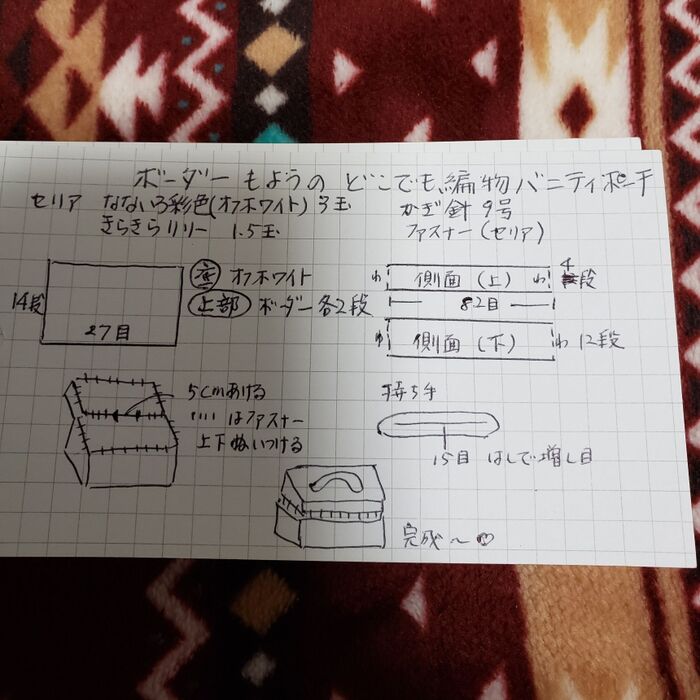 ボーダーもようの どこでも編物バニティポーチ
セリア なないろ彩色(オフホワイト) 3玉
きらきらリリー 1.5玉
かぎ針 9号
ファスナー(セリア)
14段
27目
底 オフホワイト
上部 ボーダー各2段
わ 側面(上) わ 4段
82目
わ 側面(下) わ 12段
5cmあける
'''' はファスナー
上下ぬいつける
持ち手
15目 はしで増し目
完成〜♡